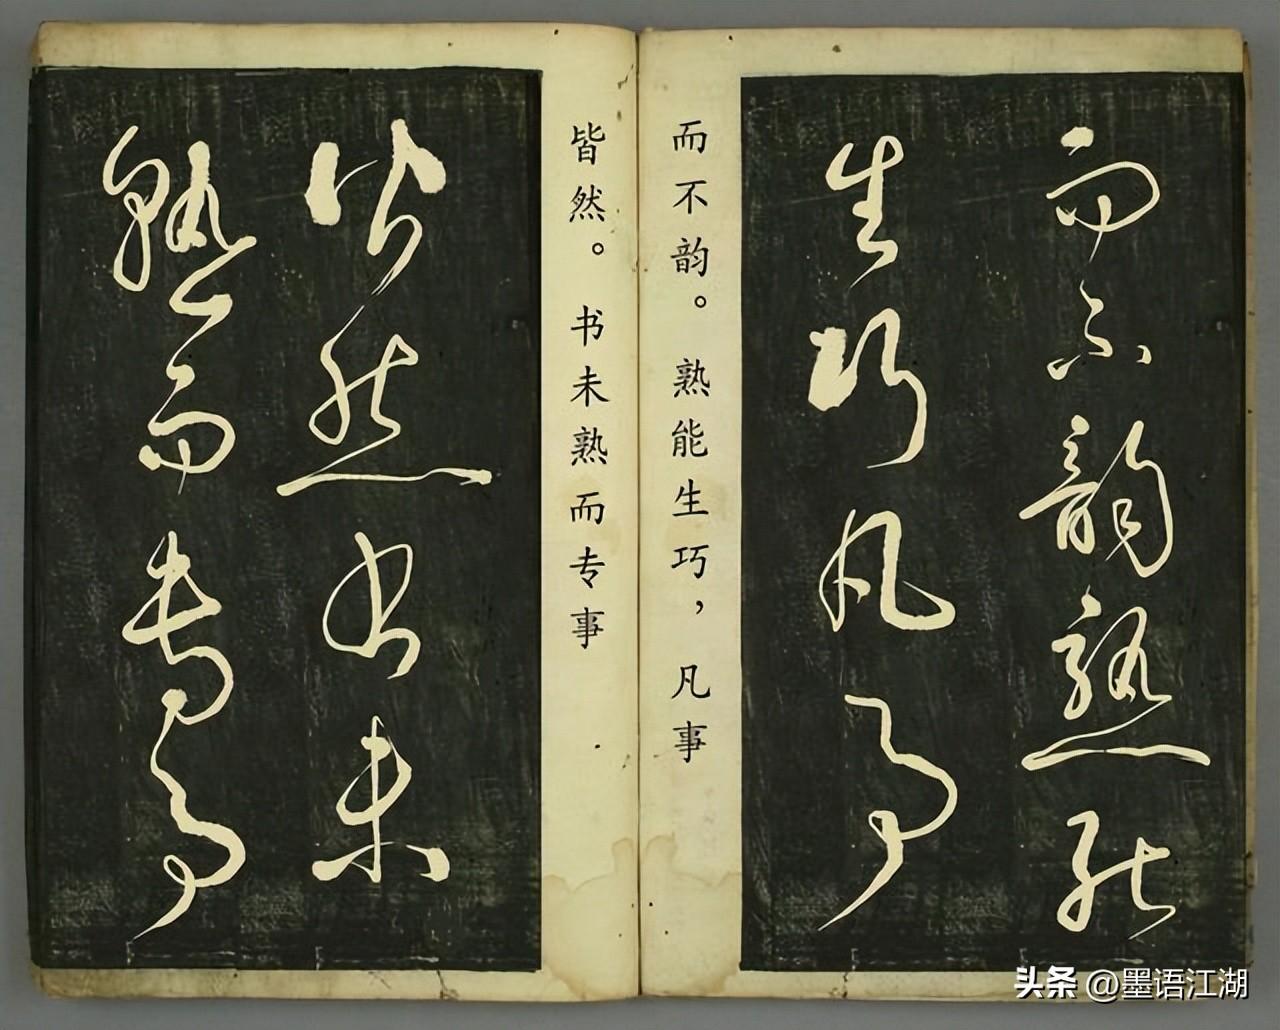 而不韵熟能
生巧凡事
而不韵。熟能生巧，凡事
皆然。书未熟而专事
皆然书未
熟而专事
头条 @墨语江湖